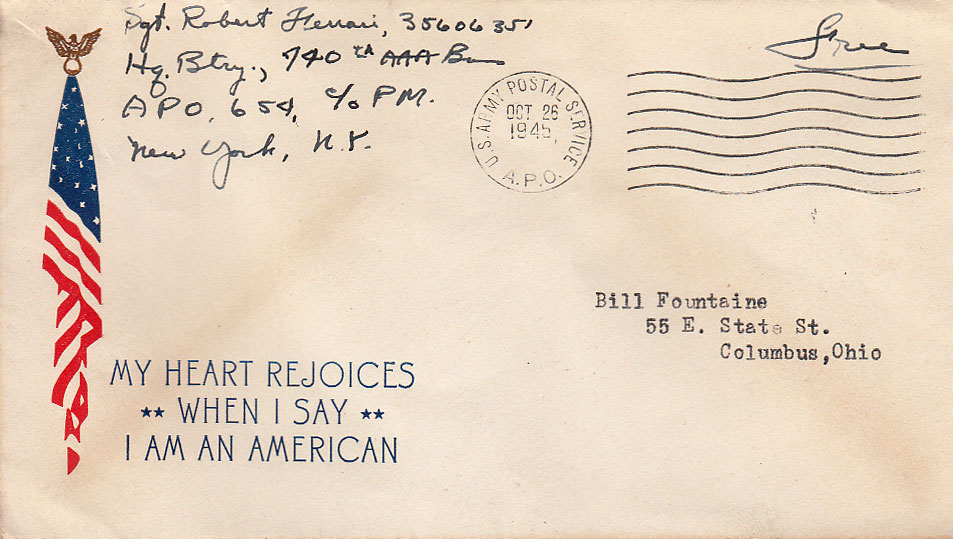 Sgt. Robert Ferrari, 35606351
Hq. Btry., 740th AAA Bn
APO, 654, c/o PM.
New York, N.Y.
Free
U.S. ARMY POSTAL SERVICE
OCT 26
1945
A.P.O.
Bill Fountaine
55 E. State St.
Columbus, Ohio
MY HEART REJOICES
★★ WHEN I SAY ★★
I AM AN AMERICAN